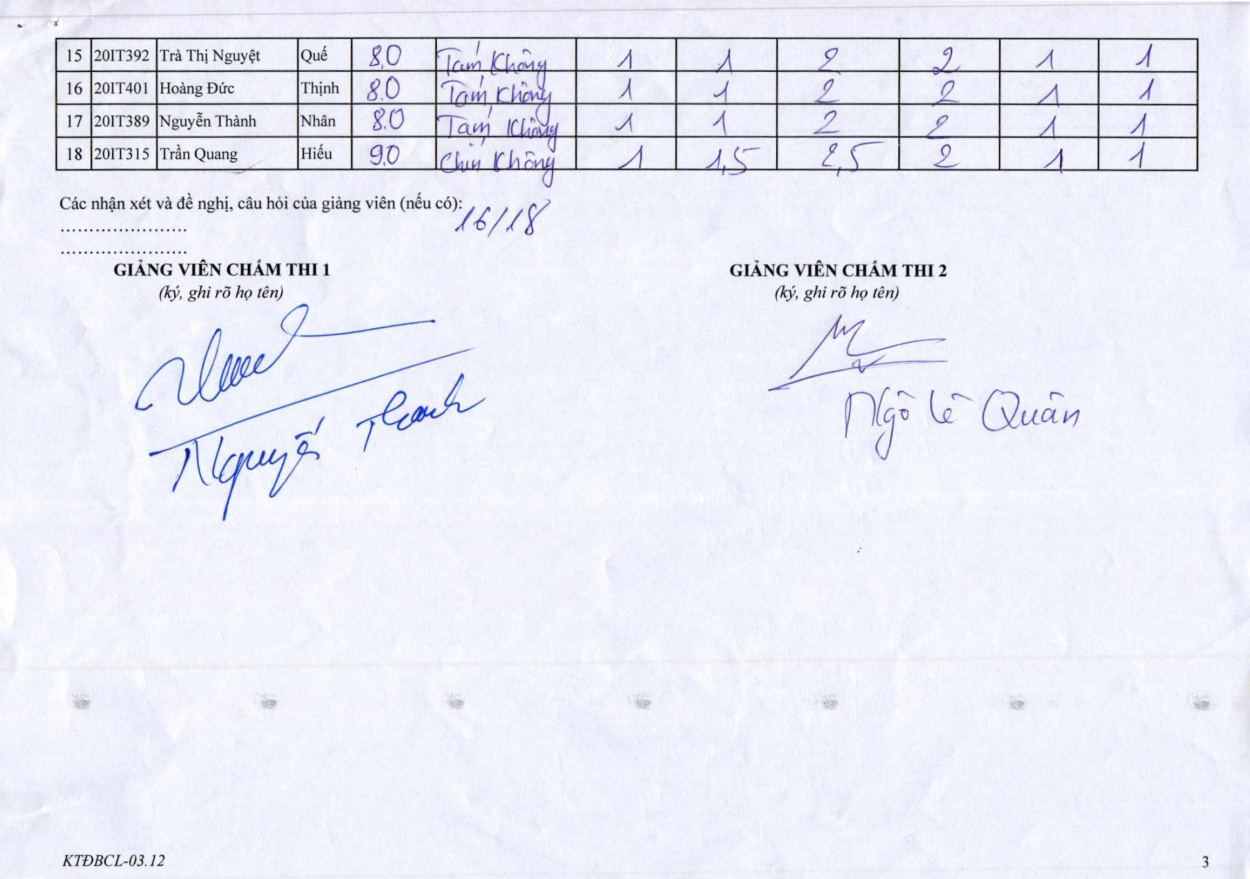 15 20IT392 Trà Thị Nguyệt Quế 8.0 Tám Không 1 1 2 2 1 1
16 20IT401 Hoàng Đức Thịnh 8.0 Tám Không 1 1 2 2 1 1
17 20IT389 Nguyễn Thành Nhân 8.0 Tám Không 1 1 2 2 1 1
18 20IT315 Trần Quang Hiếu 9.0 Chín Không 1 1,5 2,5 2 1 1
Các nhận xét và đề nghị, câu hỏi của giảng viên (nếu có): 16/18
......................
......................
GIẢNG VIÊN CHẤM THI 1 GIẢNG VIÊN CHẤM THI 2
(ký, ghi rõ họ tên) (ký, ghi rõ họ tên)
Nguyễn Thanh Ngô Lê Quân
KTĐBCL-03.12 3